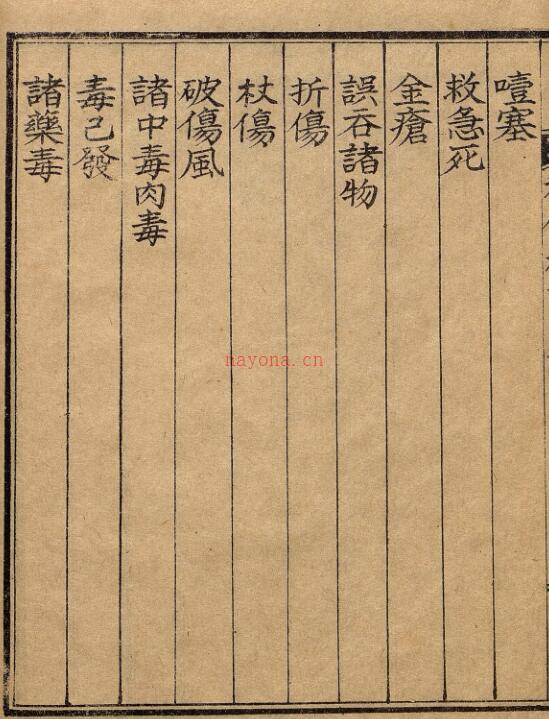 噎塞
救急死
金瘡
誤吞諸物
折傷
杖傷
破傷風
諸中毒肉毒
毒已發
諸藥毒
nayona.cn